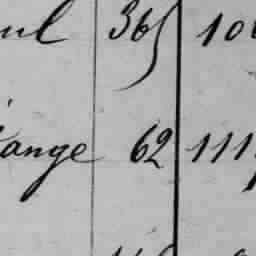 ul 365 10
ange 62 111